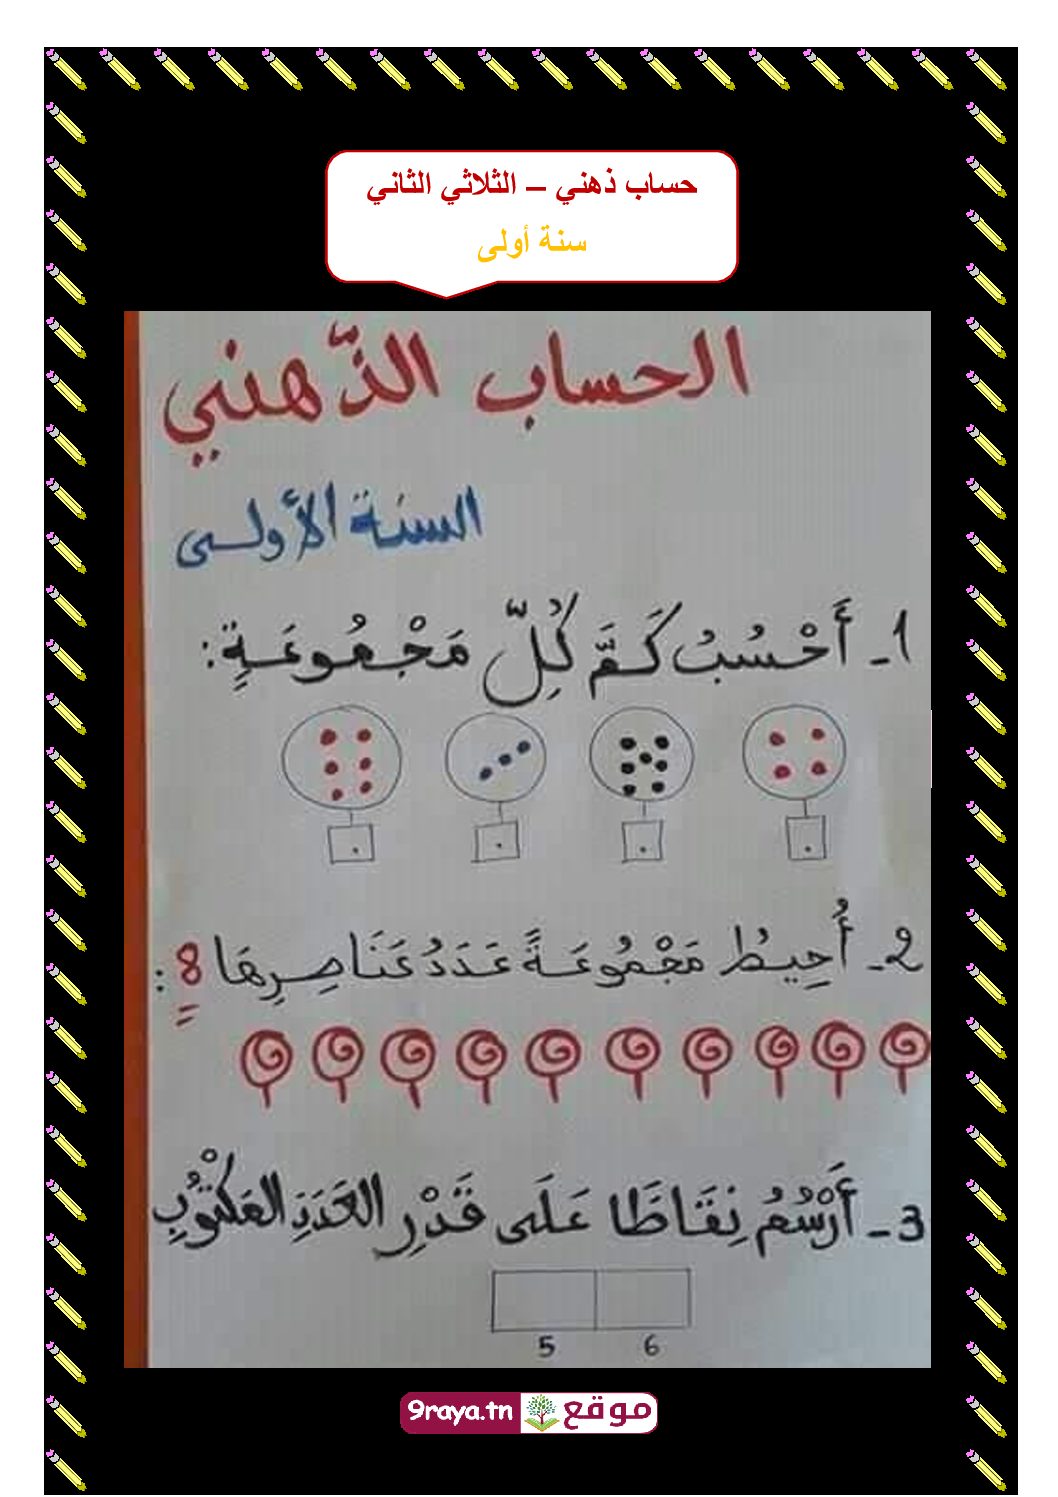 حساب ذهني – الثلاثي الثاني
سنة أولى
الحساب الذّهني
السنة الأولى
1- أَحْسُبُ كَمَّ كُلِّ مَجْمُوعَةٍ:
2- أُحِيطُ مَجْمُوعَةً عَدَدُ عَنَاصِرِهَا 8:
3- أَرْسُمُ نِقَاطًا عَلَى قَدْرِ العَدَدِ المَكْتُوبِ
5 6
موقع 9raya.tn